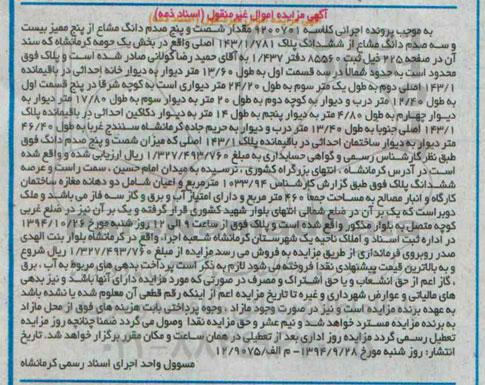 آگهی مزایده اموال غیرمنقول (اسناد ذمه)
به موجب پرونده اجرائی کلاسه ۹۲۰۰۷۰۱ مقدار شصت و پنج صدم دانگ مشاع از پنج ممیز بیست
و سه صدم دانگ مشاع از ششدانگ پلاک ۱۴۳/۱/۷۸۱ اصلی واقع در بخش یک حومه کرمانشاه که سند
آن در صفحه ۲۲۵ ذیل ثبت ۸۵۵۶۰ دفتر ۱/۴۳۷ به آقای حمید رضا گولانی صادر شده است و پلاک فوق
محدود است به حدود شمالا در سه قسمت اول به طول ۱۳/۶۰ متر دیوار به دیوار خانه احداثی در باقیمانده
۱۴۳/۱ اصلی دوم به طول یک متر سوم به طول ۲۴/۲۰ متر دیواری است به کوچه شرقا در پنج قسمت اول
به طول ۱۲/۴۰ متر درب و دیوار به کوچه دوم به طول ۲۰ متر به دیوار سوم به طول ۱۷/۸۰ متر دیوار به
دیوار چهارم به طول ۴/۸۰ متر به دیوار پنجم به طول ۱۴ متر به دیوار دکاکین احداثی در باقیمانده پلاک
۱۴۳/۱ اصلی جنوبا به طول ۱۳/۴۰ متر درب و دیوار به حریم جاده کرمانشاه سنندج غربا به طول ۴۶/۴۰
متر دیوار به دیوار ساختمان احداثی در باقیمانده پلاک ۱۴۳/۱ اصلی که میزان شصت و پنج صدم دانگ فوق
طبق نظر کارشناس رسمی و گواهی حسابداری به مبلغ ۱/۳۲۷/۴۹۳/۷۶۰ ریال ارزیابی شده و واقع شده
است در آدرس کرمانشاه ، انتهای بزرگراه کشوری ، نرسیده به میدان امام حسین ، سمت راست و عرصه
ششدانگ پلاک فوق طبق گزارش کارشناس ۱۰۳۳/۹۴ مترمربع و اعیان شامل دو دهانه مغازه ساختمان
کارگاه و انبار مصالح به مساحت جمعا ۴۶۰ متر مربع و دارای امتیاز آب و برق و گاز سه فاز می باشد و ملک
دوبر است که یک بر آن در ضلع شمالی انتهای بلوار شهید کشوری قرار گرفته و یک بر آن نیز در ضلع غربی
کوچه متصل به بلوار مذکور واقع شده است و پلاک فوق از ساعت ۹ الی ۱۲ روز شنبه مورخ ۱۳۹۴/۱۰/۲۶
در اداره ثبت اسناد و املاک ناحیه یک شهرستان کرمانشاه شعبه اجرا، واقع در کرمانشاه بلوار بنت الهدی
صدر روبروی فرمانداری از طریق مزایده به فروش می رسد مزایده از مبلغ ۱/۳۲۷/۴۹۳/۷۶۰ ریال شروع
و به بالاترین قیمت پیشنهادی نقدا فروخته می شود لازم به ذکر است پرداخت بدهی های مربوط به آب ، برق
، گاز اعم از حق انشعاب و یا حق اشتراک و مصرف در صورتی که مورد مزایده دارای آنها باشد و نیز بدهی
های مالیاتی و عوارض شهرداری و غیره تا تاریخ مزایده اعم از اینکه رقم قطعی آن معلوم شده یا نشده باشد
به عهده برنده مزایده است و نیز در صورت وجود مازاد ، وجوه پرداختی بابت هزینه های فوق از محل مازاد
به برنده مزایده مسترد خواهد شد و نیم عشر و حق مزایده نقدا وصول می گردد ضمنا چنانچه روز مزایده
تعطیل رسمی گردد مزایده روز اداری بعد از تعطیلی در همان ساعت و مکان مقرر برگزار خواهد شد. تاریخ
انتشار: روز شنبه مورخ ۱۳۹۴/۹/۲۸- م الف/۱۲/۹۰۷۵
مسوول واحد اجرای اسناد رسمی کرمانشاه